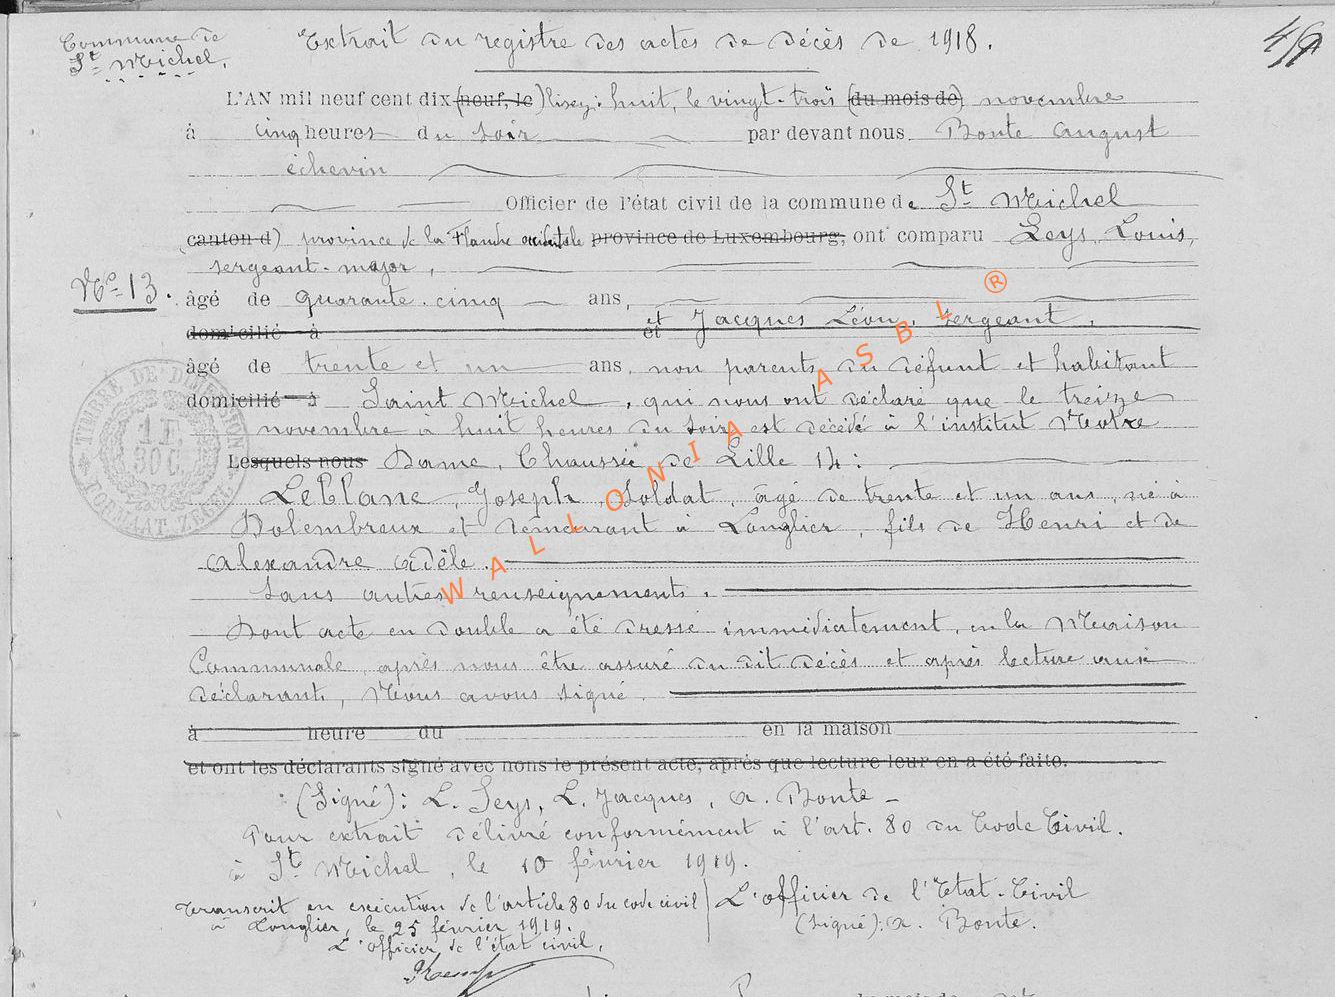 Commune de
St Michel.
Extrait du registre des actes de décès de 1918.
L'AN mil neuf cent dix (neuf, le) lisez: huit, le vingt-trois (du mois de) novembre
à cinq heures du soir par devant nous Bonte August
échevin
Officier de l'état civil de la commune de St Michel
(canton d) province de la Flandre occidentale province de Luxembourg, ont comparu Seys, Louis,
sergeant-major,
No 13.
âgé de quarante-cinq ans,
domicilié à et et Jacques Léon, sergeant,
âgé de trente et un ans, non parents du défunt et habitant
domicilié à Saint Michel, qui nous ont déclaré que le treize
novembre à huit heures du soir est décédé à l'institut Notre
Lesquels nous Dame, Chaussée de Lille 14:
LeBlanc Joseph, soldat, âgé de trente et un ans, né à
Dolembreux et demeurant à Longlier, fils de Henri et de
Alexandre Adèle.
Sans autres renseignements.
Dont acte en double a été dressé immédiatement, en la Maison
Communale, après nous être assuré du dit décès et après lecture aux
déclarants, Nous avons signé.
à heure du en la maison
et ont les déclarants signé avec nous le présent acte, après que lecture leur en a été faite.
(Signé): L. Seys, L. Jacques, A. Bonte -
Pour extrait délivré conformément à l'art. 80 du Code Civil.
à St Michel, le 10 février 1919.
Transcrit en exécution de l'article 80 du code civil
à Longlier, le 25 février 1919.
L'officier de l'état civil,
L'officier de l'Etat-Civil
(Signé): A. Bonte.
TIMBRE DE DIMENSION
1 F.
30 C.
FORMAAT ZEGEL
WALLONIA ASBL ®